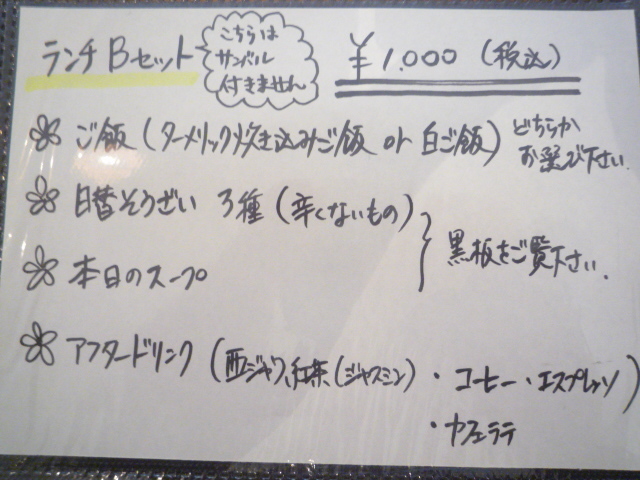 ランチBセット
こちらは
サンバル
付きません
¥1.000（税込）
ご飯（ターメリック炊き込みご飯 or 白ご飯）
どちらか
お選び下さい.
日替そうざい 3種（辛くないもの）
本日のスープ
黒板をご覧下さい.
アフタードリンク（西ジャワ紅茶（ジャスミン）・コーヒー・エスプレッソ
・カフェラテ）